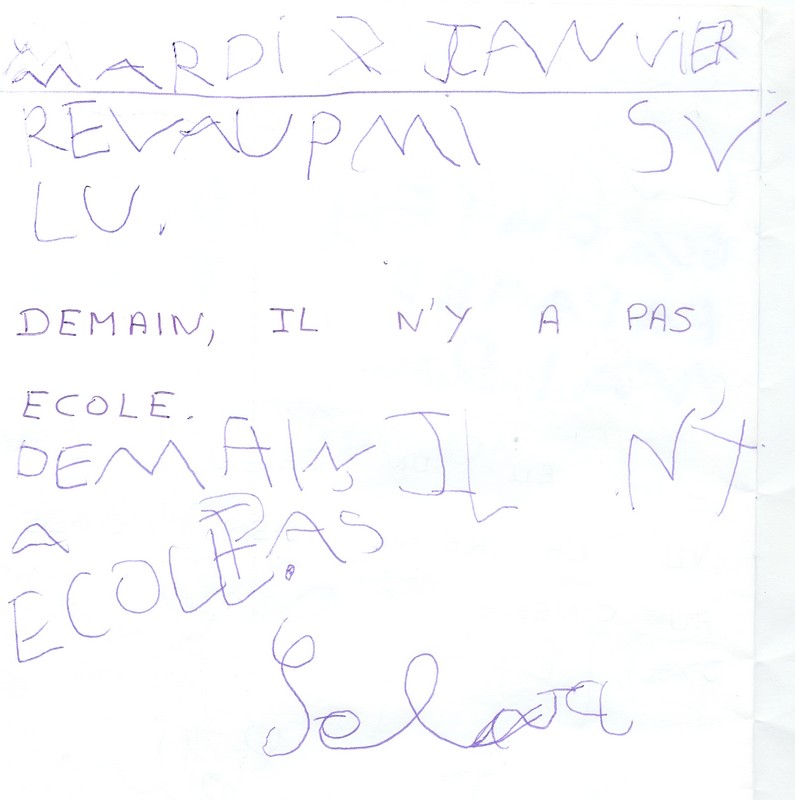 MARDI 2 JANVIER
REVAUPMI SV
LU.
DEMAIN, IL N'Y A PAS
ECOLE.
DEMAIN, IL N'Y
A PAS
ECOLE.